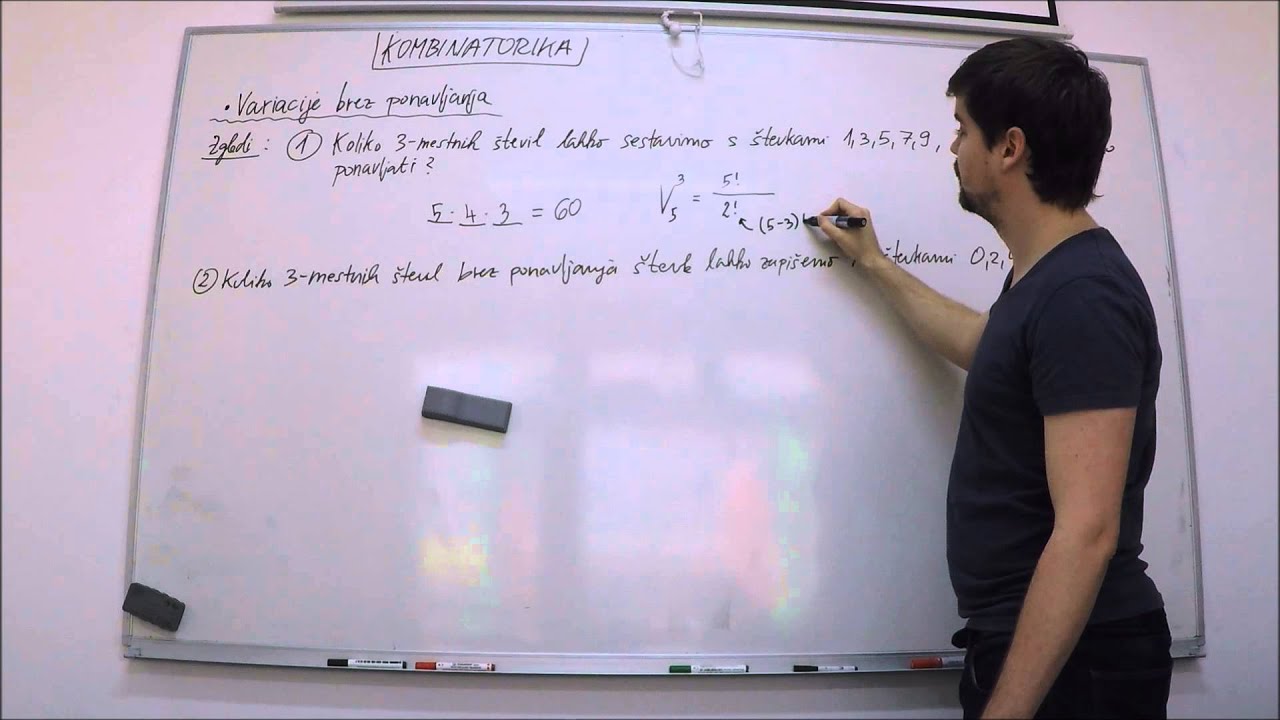 KOMBINATORIKA
• Variacije brez ponavljanja
Zgledi: ① Koliko 3-mestnih števil lahko sestavimo s števkami 1,3,5,7,9,
ponavljati?
5 · 4 · 3 = 60
V₅³ = 5!/2! (5-3)
② Koliko 3-mestnih števil brez ponavljanja števk lahko zapišemo števkami 0,2,